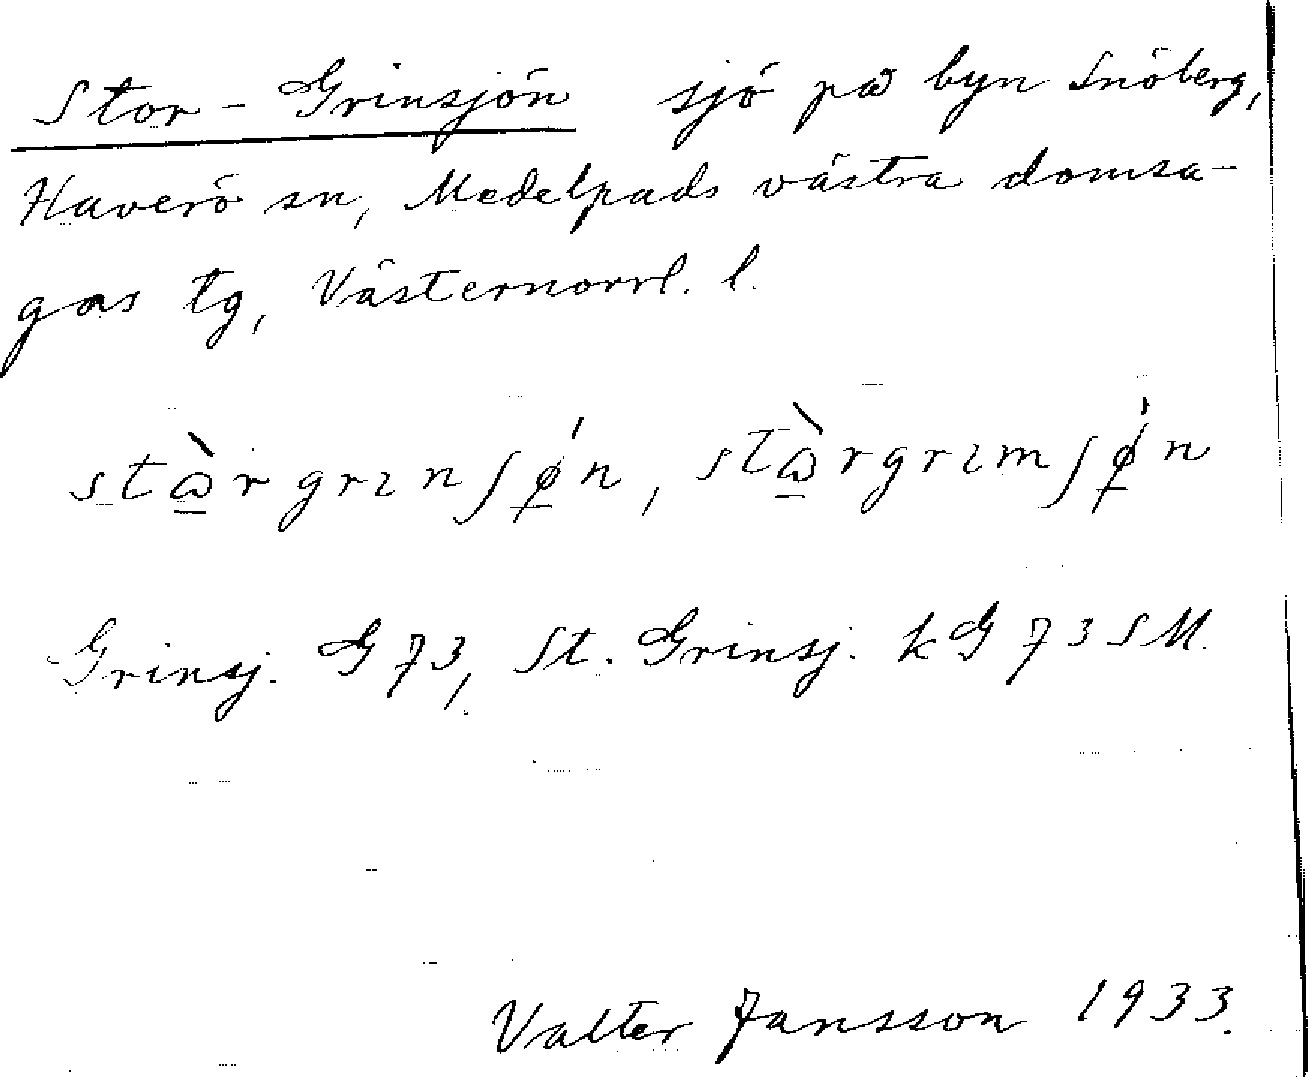 Stor-Grinsjön sjö på byn Snöberg,
Haverö sn, Medelpads västra domsa-
gas tg, Västernorrl. l.
stɷ̀rgrɪnʃǿ̲n, stɷ̀rgrɪmʃǿ̲n
Grinsj. G 73, St. Grinsj. kG 73 SM.
Valter Jansson 1933.